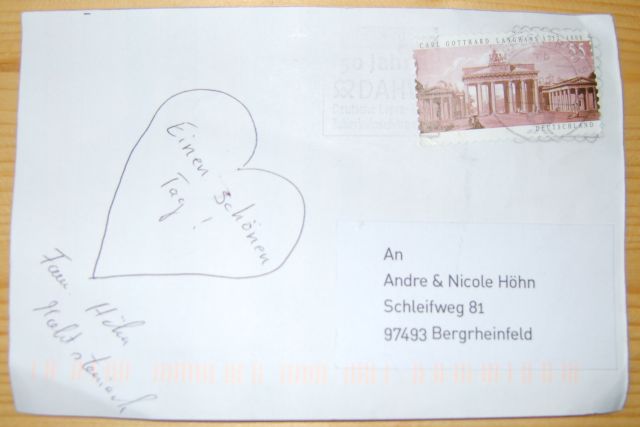 CARL GOTTHARD LANGHANS 1732-1808
55
DEUTSCHLAND
50 Jahre
DAHW
Einen schönen
Tag!
Fam. Höhn
An
Andre & Nicole Höhn
Schleifweg 81
97493 Bergrheinfeld